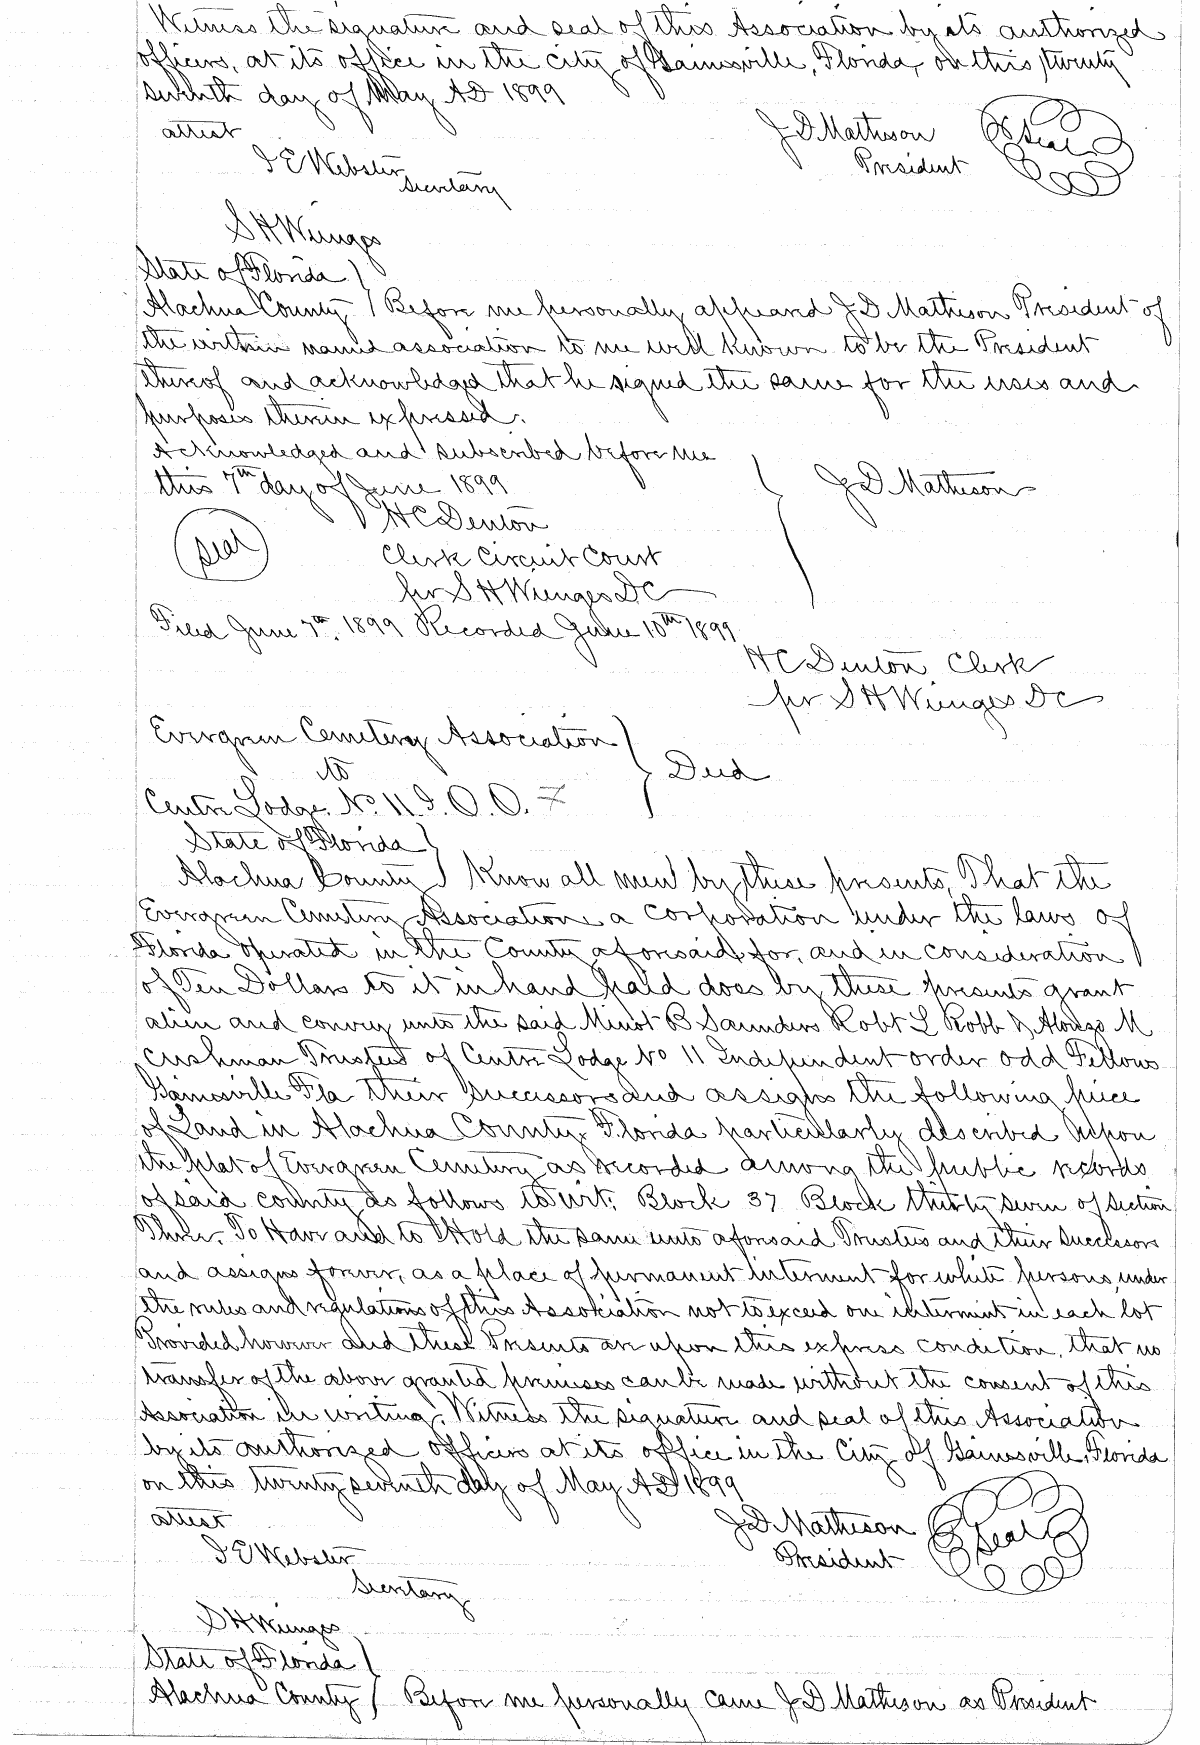 Witness the signature and seal of this Association by its authorized
officers, at its office in the city of Gainesville, Florida, on this twenty
seventh day of May AD 1899
attest
J D Matheson
Seal
I E Webster
President
Secretary
S H Wienges
State of Florida
Alachua County Before me personally appeared J D Matheson President of
the within named association to me well known to be the President
thereof and acknowledged that he signed the same for the uses and
purposes therein expressed.
Acknowledged and subscribed before me
this 7th day of June 1899
J D Matheson
H C Denton
Seal
Clerk Circuit Court
per S H Wienges DC
Filed June 7th, 1899 Recorded June 10th 1899
H C Denton Clerk
per S H Wienges DC
Evergreen Cemetery Association
to
Deed
Centre Lodge No 11 I.O.O. F
State of Florida
Alachua County Know all men by these presents, That the
Evergreen Cemetery Association a corporation under the laws of
Florida operated in the County aforesaid, for, and in consideration
of Ten Dollars to it in hand paid does by these presents grant
alien and convey unto the said Minot B Saunders Robt L Robb & Alonzo M
Cushman Trustees of Centre Lodge No 11 Independent order odd Fellows
Gainesville Fla their successors and assigns the following piece
of Land in Alachua County, Florida particularly described upon
the plat of Evergreen Cemetery as recorded among the public records
of said county as follows to wit: Block 37 Block thirty seven of Section
Three. To Have and to Hold the same unto aforesaid Trustees and their successors
and assigns forever, as a place of permanent interment for white persons, under
the rules and regulations of this Association not to exceed one interment in each lot
Provided, however and these Presents are upon this express condition, that no
transfer of the above granted premises can be made without the consent of this
Association in writing. Witness the signature and seal of this Association
by its authorized officers at its office in the City of Gainesville, Florida
on this twenty seventh day of May AD 1899
attest
J D Matheson
Seal
I E Webster
President
Secretary
S H Wienges
State of Florida
Alachua County Before me personally came J D Matheson as President